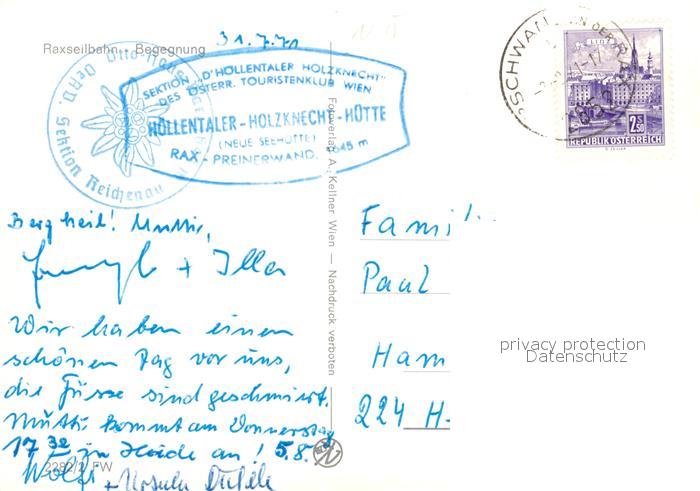 31.7.70
Raxseilbahn - Begegnung
Otto-Haus
OeAV. Sektion Reichenau
SEKTION „D'HÖLLENTALER HOLZKNECHT"
DES ÖSTERR. TOURISTENKLUB WIEN
HÖLLENTALER-HOLZKNECHT-HÜTTE
(NEUE SEEHÜTTE)
RAX-PREINERWAND, 1645 m
Bergheil! Mutti,
+ Illa
Wir haben einen
schönen Tag vor uns,
die Füsse sind geschmiert.
Mutti kommt am Donnerstag
17 32 in Heide an! 5.8.
Wolfg
+ Ursula
2282/2 FW
Fotoverlag A. Kellner Wien — Nachdruck verboten
Fami
Paul
Ham
224 H
SCHWAR
LINZ
2.50
REPUBLIK ÖSTERREICH
privacy protection
Datenschutz